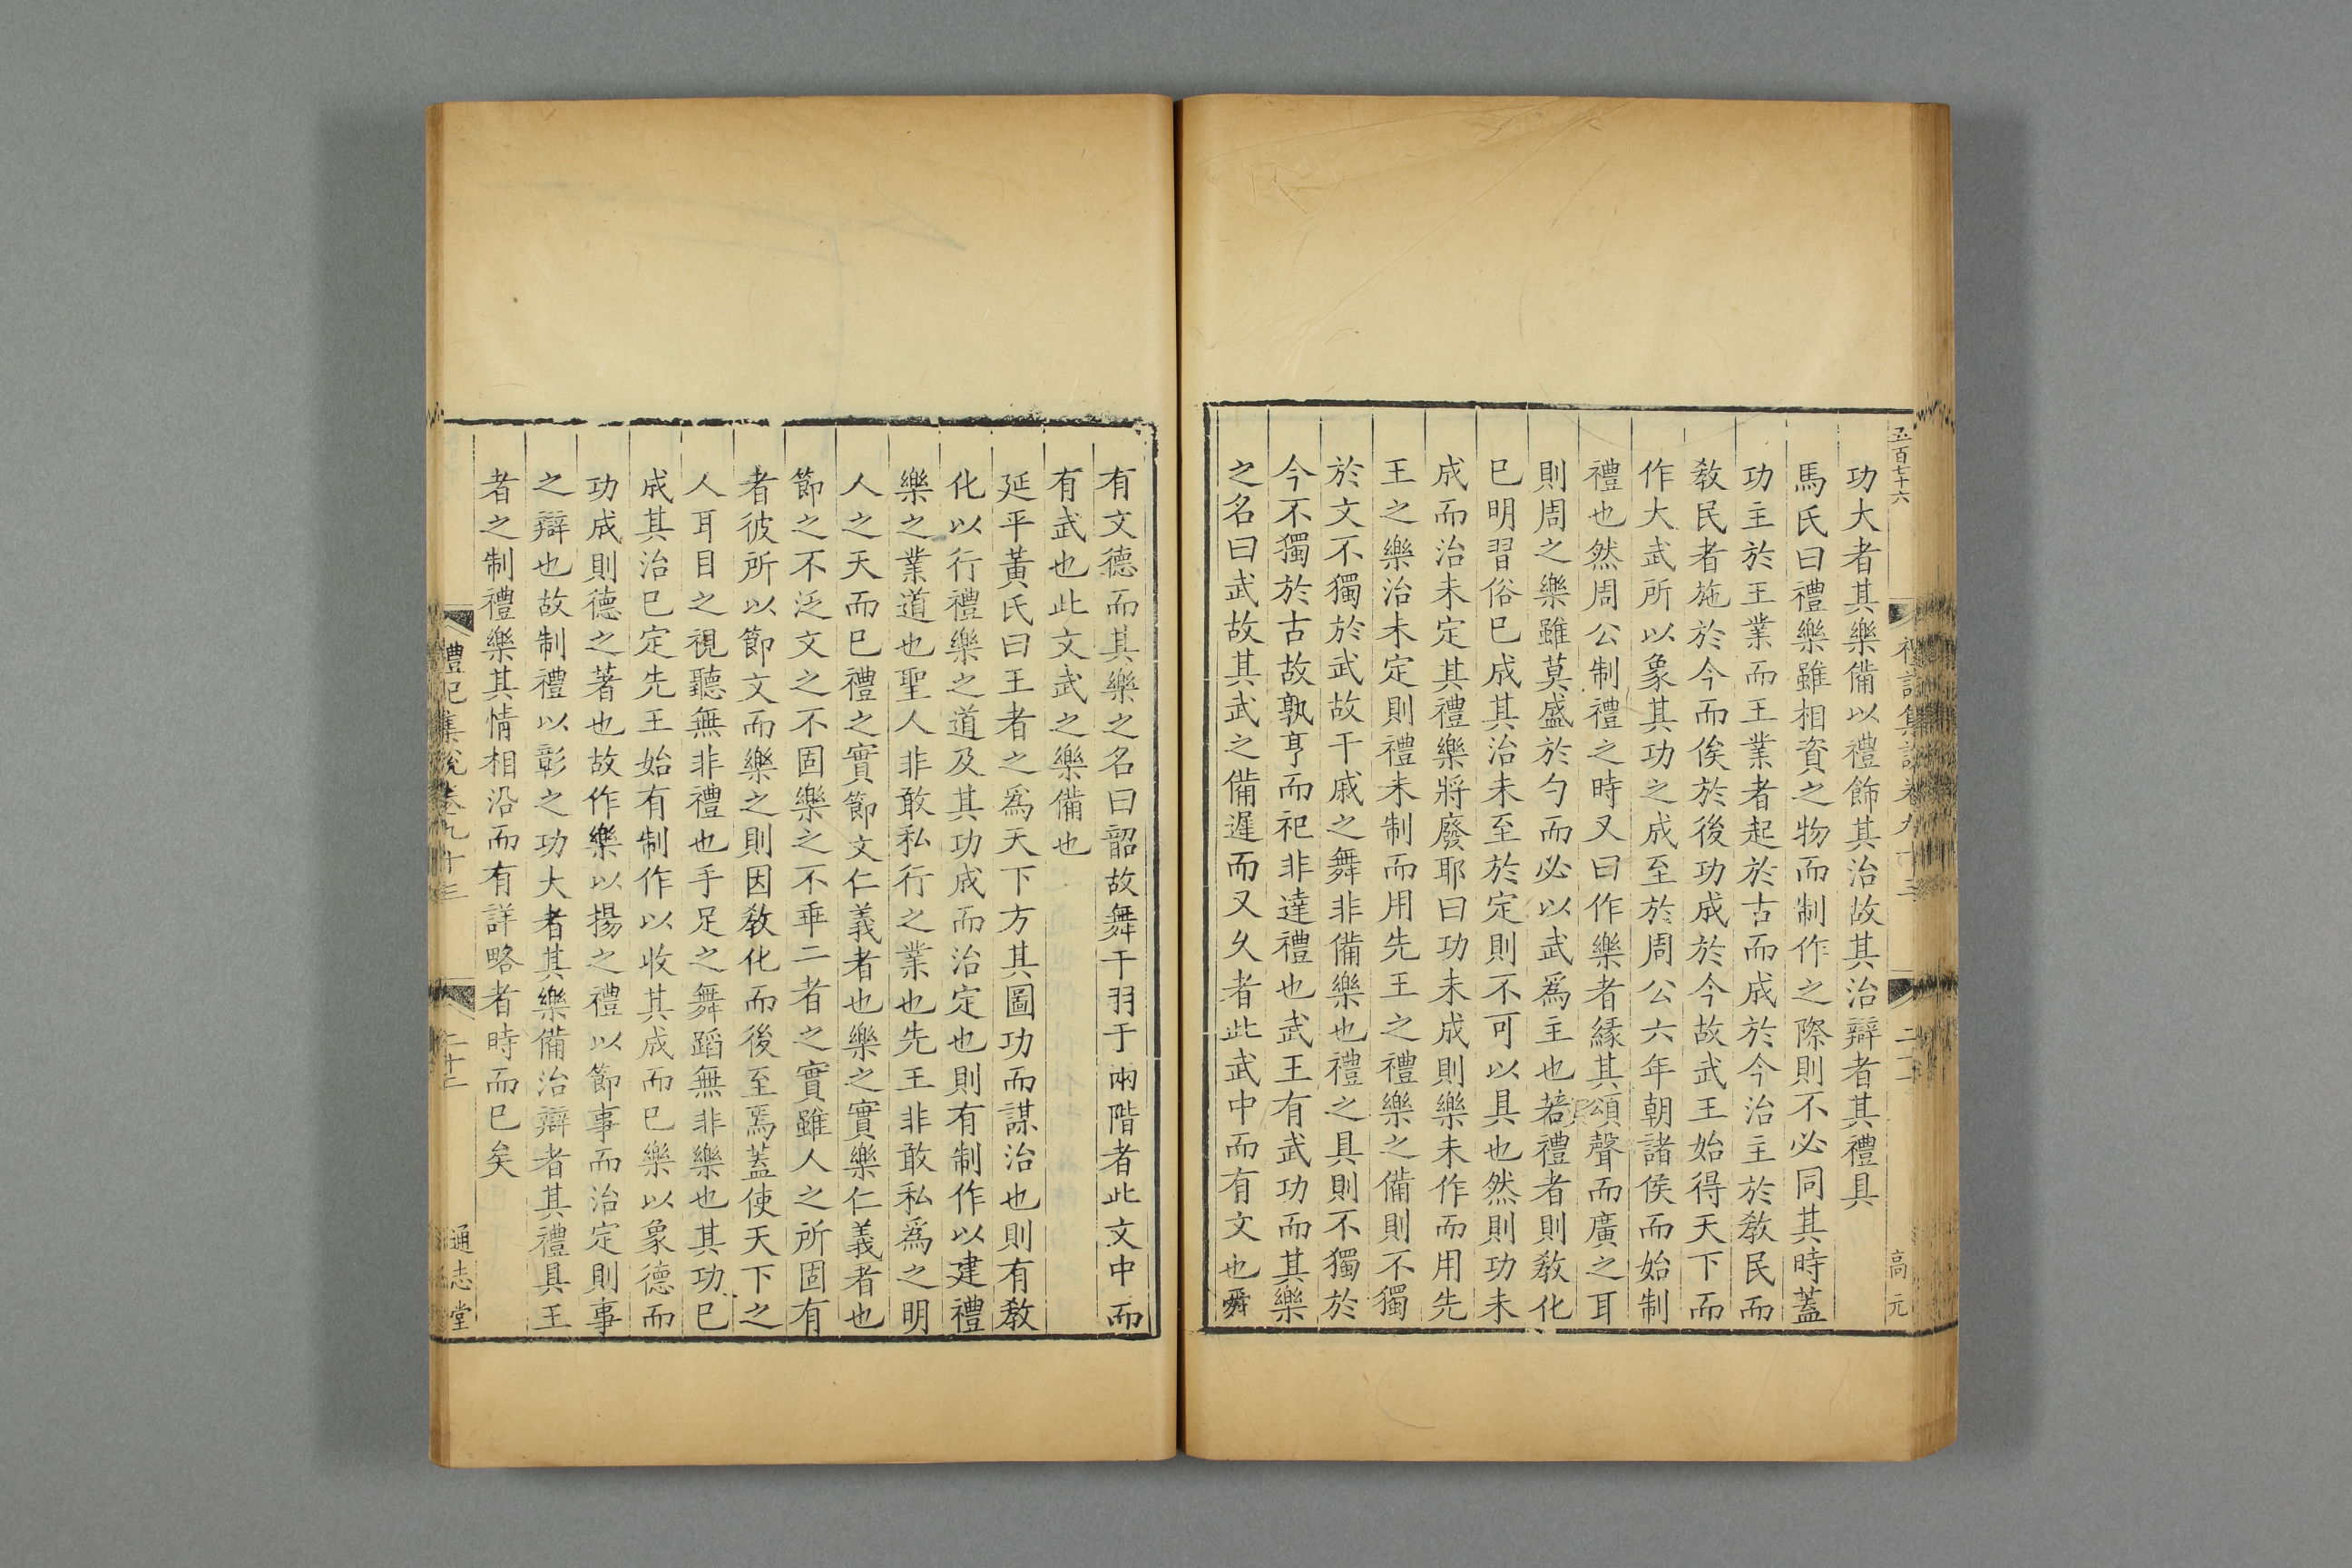 五百七十六
禮記集說卷九十三
高元
功大者其樂備以禮飾其治故其治辯者其禮具
馬氏曰禮樂雖相資之物而制作之際則不必同其時蓋
功主於王業而王業者起於古而成於今治主於敎民而
敎民者施於今而俟於後功成於今故武王始得天下而
作大武所以象其功之成至於周公六年朝諸侯而始制
禮也然周公制禮之時又曰作樂者緣其頌聲而廣之耳
則周之樂雖莫盛於勺而必以武爲主也若禮者則敎化
已明習俗已成其治未至於定則不可以具也然則功未
成而治未定其禮樂將廢耶曰功未成則樂未作而用先
王之樂治未定則禮未制而用先王之禮樂之備則不獨
於文不獨於武故干戚之舞非備樂也禮之具則不獨於
今不獨於古故孰亨而祀非達禮也武王有武功而其樂
之名曰武故其武之備遲而又久者此武中而有文也舜
有文德而其樂之名曰韶故舞干羽于兩階者此文中而
有武也此文武之樂備也
延平黃氏曰王者之爲天下方其圖功而謀治也則有敎
化以行禮樂之道及其功成而治定也則有制作以建禮
樂之業道也聖人非敢私行之業也先王非敢私爲之明
人之天而已禮之實節文仁義者也樂之實樂仁義者也
節之不泛文之不固樂之不乖二者之實雖人之所固有
者彼所以節文而樂之則因敎化而後至焉蓋使天下之
人耳目之視聽無非禮也手足之舞蹈無非樂也其功已
成其治已定先王始有制作以收其成而已樂以象德而
功成則德之著也故作樂以揚之禮以節事而治定則事
之辯也故制禮以彰之功大者其樂備治辯者其禮具王
者之制禮樂其情相沿而有詳略者時而已矣
禮記集說卷九十三
二十二
通志堂